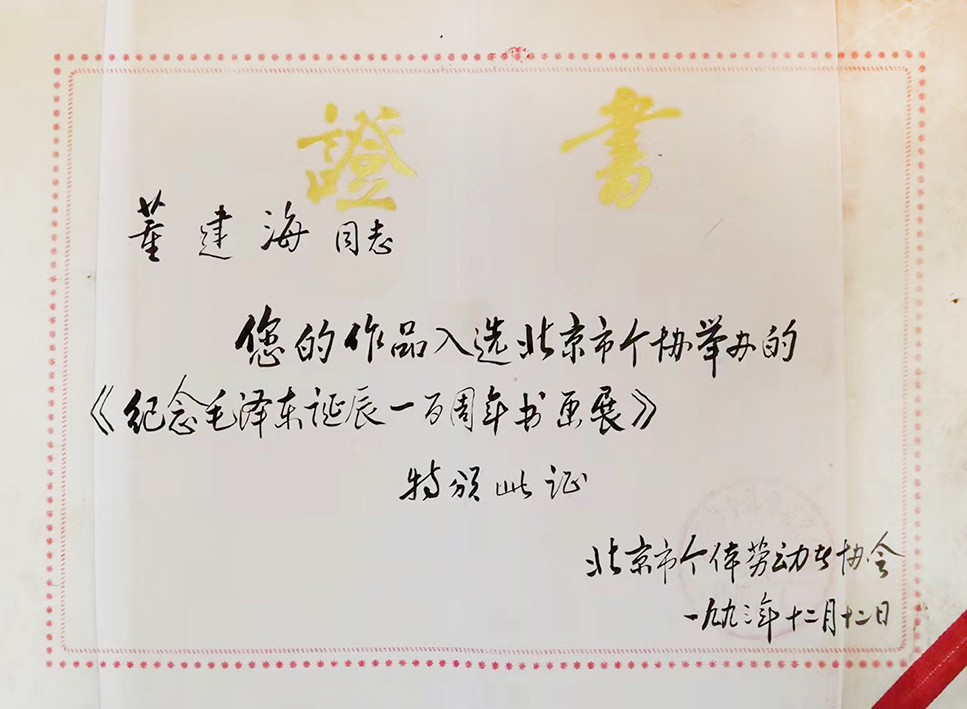 證書
董建海同志
您的作品入选北京市个协举办的
《纪念毛泽东诞辰一百周年书画展》
特颁此证
北京市个体劳动者协会
一九九三年十二月十二日